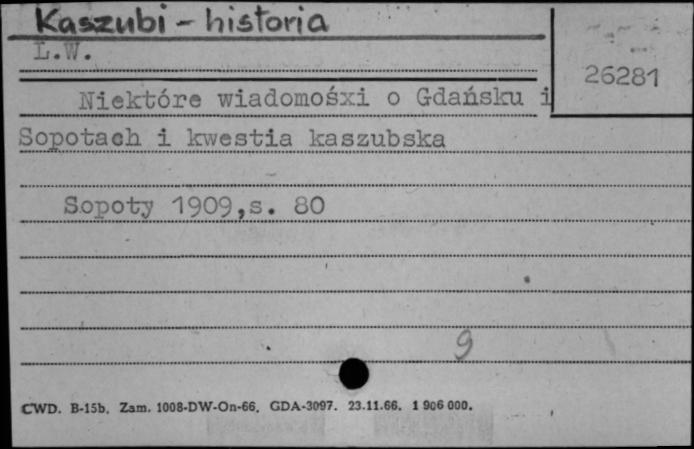 Kaszubi - historia
L.W.
26281
Niektóre wiadomośxi o Gdańsku i
Sopotach i kwestia kaszubska
Sopoty 1909,s. 80
9
CWD. B-15b. Zam. 1008-DW-On-66. GDA-3097. 23.11.66. 1 906 000.